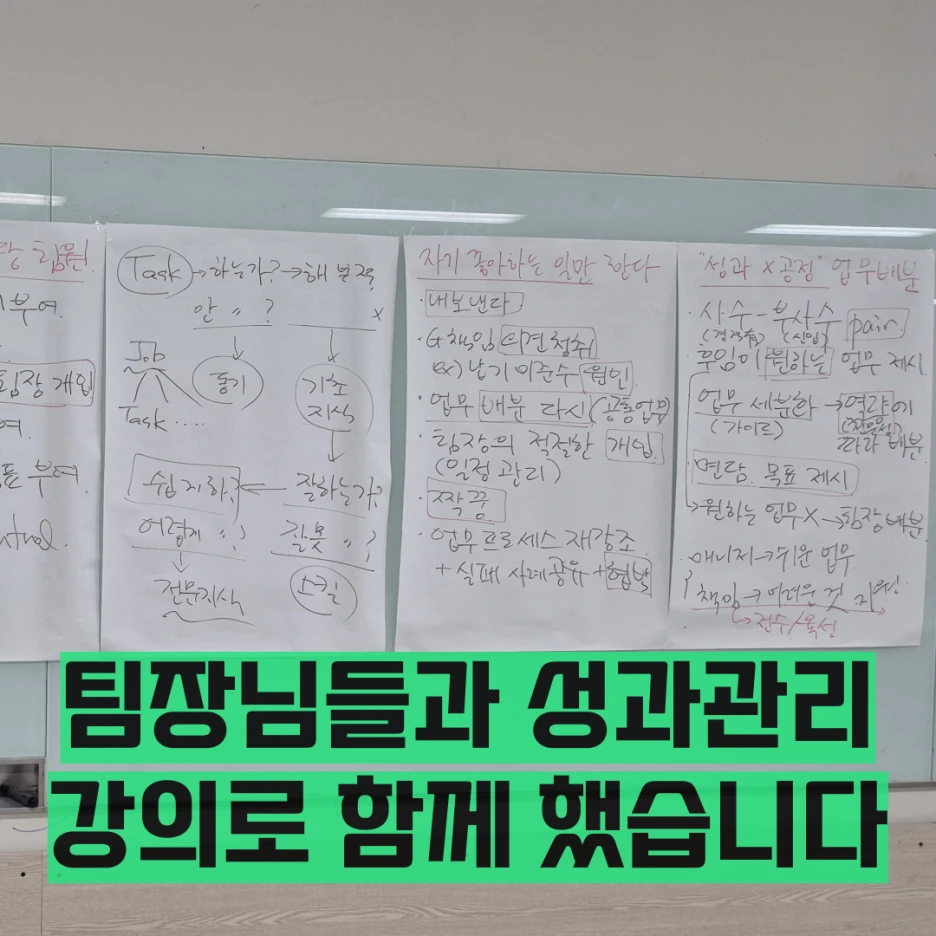 팀원
부여.
팀장 개입
여.
표 부여.
Task → 하는가? → 해 본 적?
안 〃 ? x
Job
동기
기초
지식
Task ....
쉽게 하? ← 잘하는가?
어렵게 〃 ? 잘못 〃 ?
전문지식
스킬
자기 좋아하는 일만 한다
· 내보낸다
· 책임 의견청취
ex) 납기 미준수 원인
· 업무 배분 다시 (공통업무)
· 팀장의 적절한 개입.
(일정 관리)
· 짝꿍
· 업무프로세스 재강조
+ 실패 사례공유 + 협박
"성과 x 공정" 업무배분
· 사수 - 부사수 pair.
(경력有) (신입)
· 후임이 원하는 업무 제시
업무 세분화 → 역량에
(가이드) (전문성)
따라 배분
· 면담. 목표 제시
↳ 원하는 업무 X → 팀장 배분
· 매니저 → 쉬운 업무
책임 → 어려운 것 지원!
↳ 전수/육성
팀장님들과 성과관리
강의로 함께 했습니다